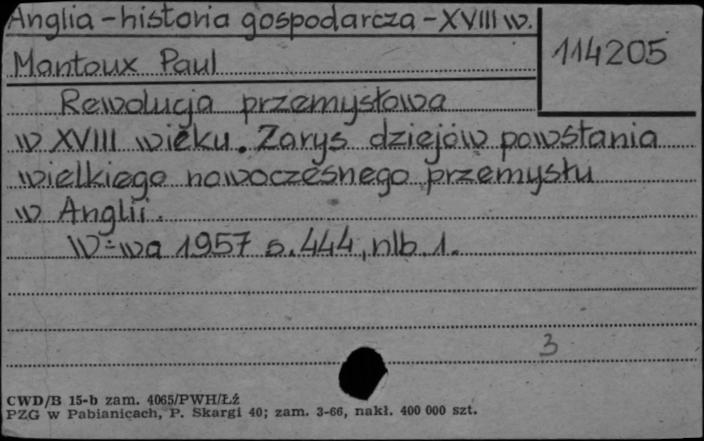 Anglia - historia gospodarcza - XVIII w.
114205
Mantoux Paul
Rewolucja przemysłowa
w XVIII wieku. Zarys dziejów powstania
wielkiego nowoczesnego przemysłu
w Anglii.
W-wa 1957 s. 444, nlb 1.
3
CWD/B 15-b zam. 4065/PWH/Łź
PZG w Pabianicach, P. Skargi 40; zam. 3-66, nakł. 400 000 szt.